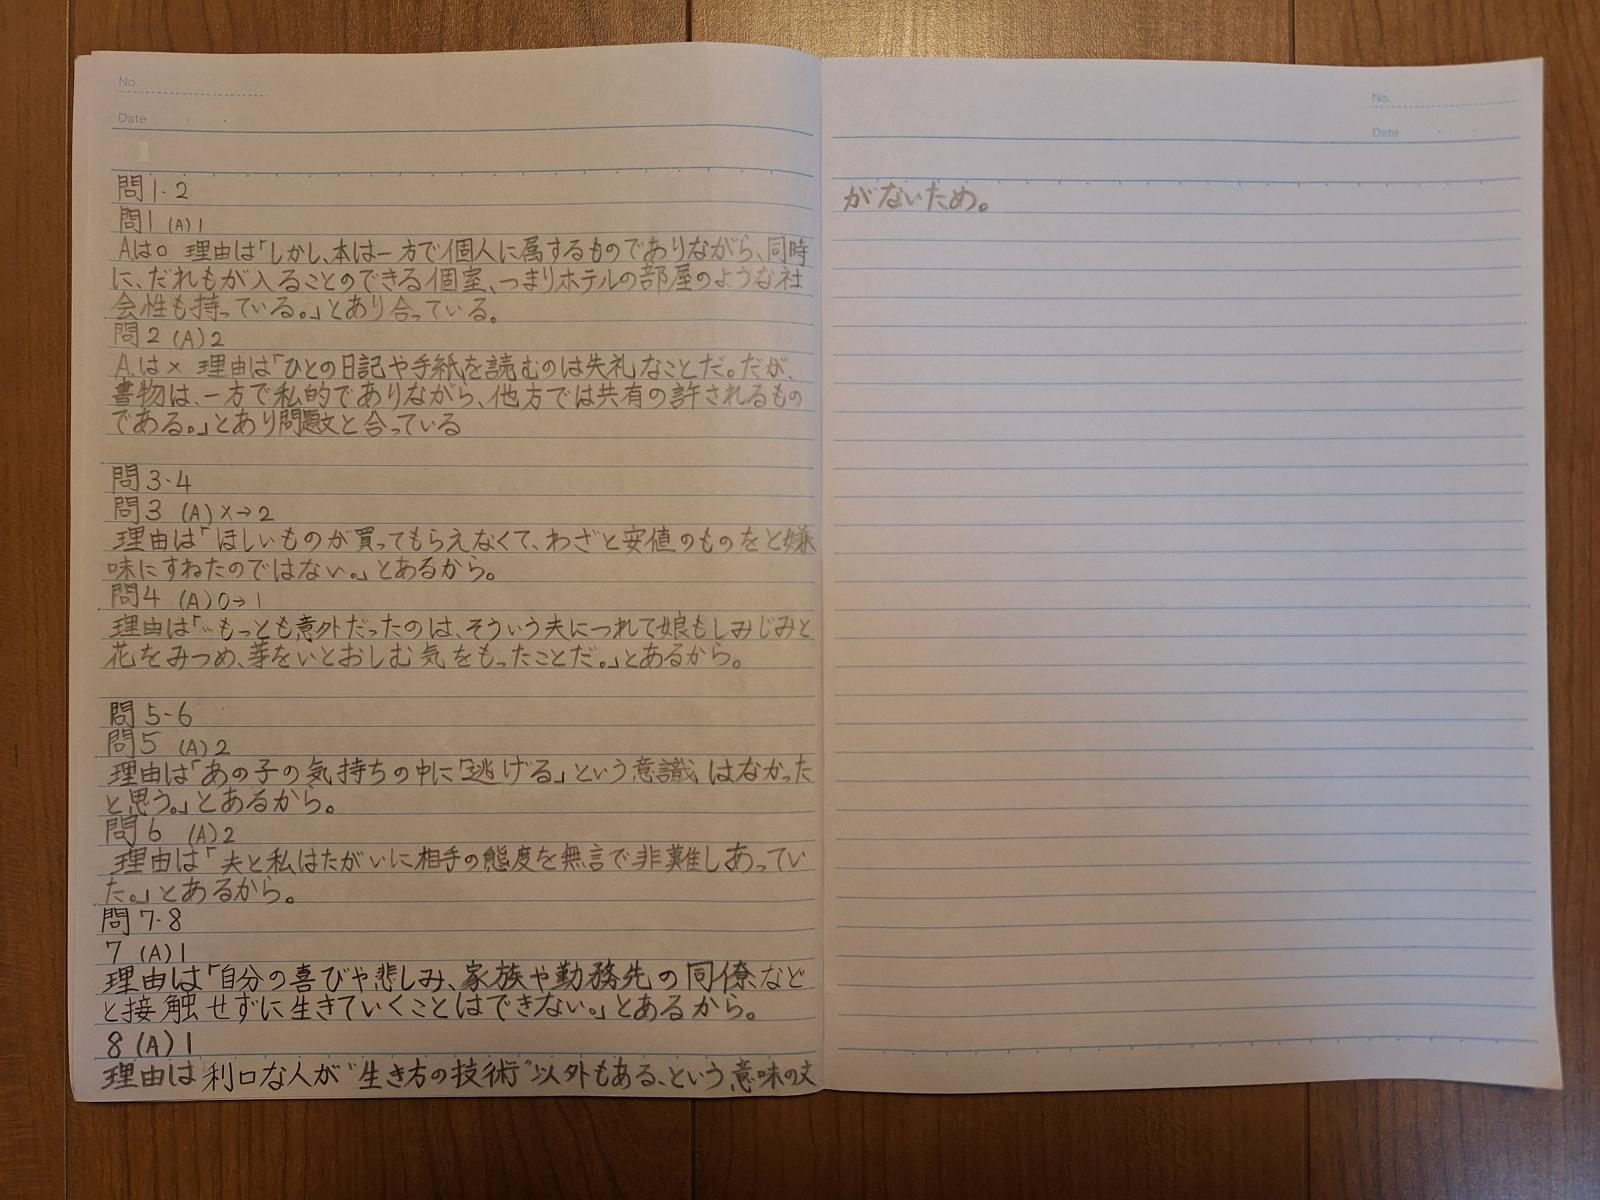 No.
Date
問1・2
問1 (A) 1
Aは○ 理由は「しかし、本は一方で個人に属するものでありながら、同時
に、だれもが入ることのできる個室、つまりホテルの部屋のような社
会性も持っている。」とあり合っている。
問2 (A) 2
Aは× 理由は「ひとの日記や手紙を読むのは失礼なことだ。だが、
書物は、一方で私的でありながら、他方では共有の許されるもの
である。」とあり問題文と合っている
問3・4
問3 (A) ×→2
理由は「ほしいものが買ってもらえなくて、わざと安値のものをと嫌
味にすねたのではない。」とあるから。
問4 (A) 0→1
理由は「…もっとも意外だったのは、そういう夫につれて娘もしみじみと
花をみつめ、芽をいとおしむ気をもったことだ。」とあるから。
問5-6
問5 (A) 2
理由は「あの子の気持ちの中に「逃げる」という意識はなかった
と思う。」とあるから。
問6 (A) 2
理由は「夫と私はたがいに相手の態度を無言で非難しあってい
た。」とあるから。
問7・8
7 (A) 1
理由は「自分の喜びや悲しみ、家族や勤務先の同僚など
と接触せずに生きていくことはできない。」とあるから。
8 (A) 1
理由は利口な人が"生き方の技術"以外もある、という意味の文
No.
Date
がないため。